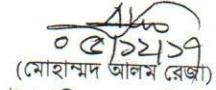 ০৫/১২/১৭
(মোহাম্মদ আলম রেজা)